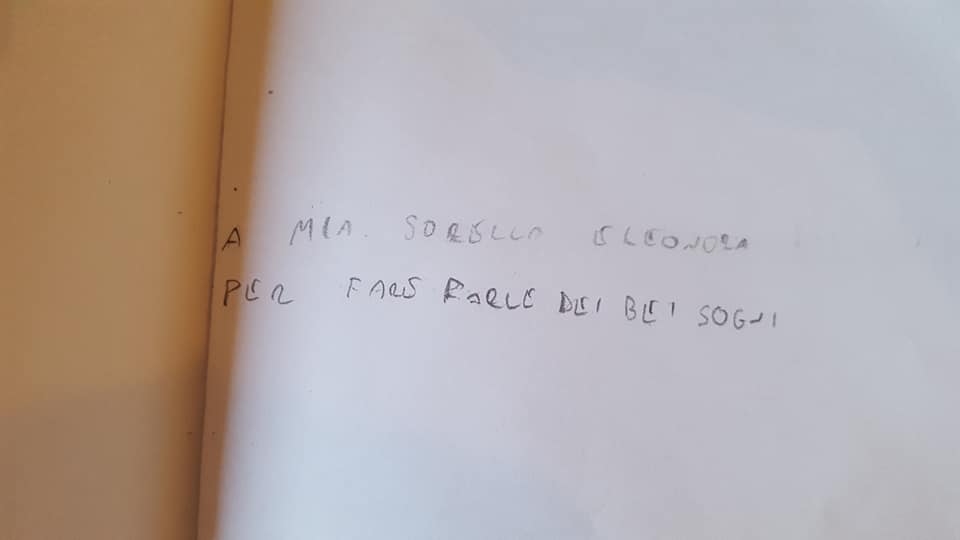 A MIA SORELLA ELEONORA
PER FARE FARLE DEI BEI SOGNI